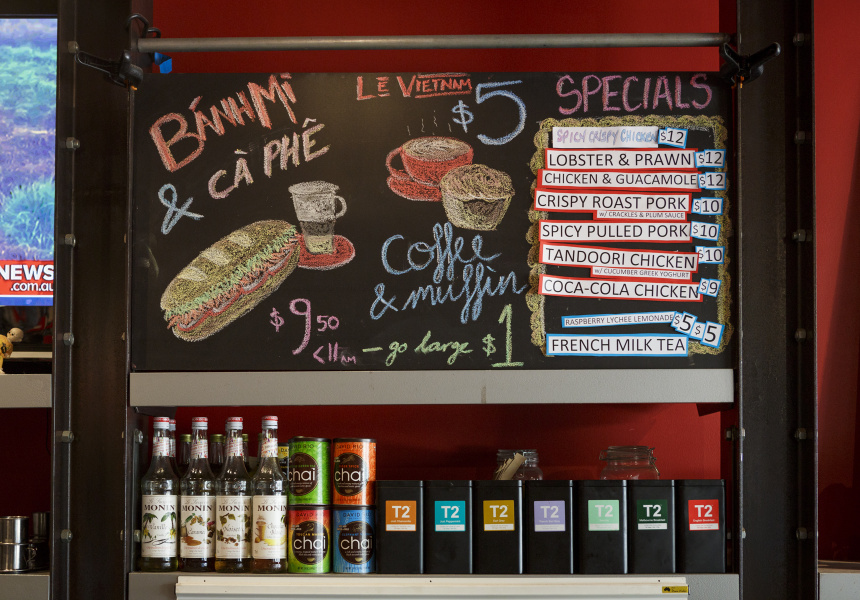 NEWS
.com.au
BÁNH MÌ
& CÀ PHÊ
$9.50
<11AM
LE VIETNAM
$5
Coffee
& muffin
- go large $1
SPECIALS
SPICY CRISPY CHICKEN $12
LOBSTER & PRAWN $12
CHICKEN & GUACAMOLE $12
CRISPY ROAST PORK $10
W/ CRACKLES & PLUM SAUCE
SPICY PULLED PORK $10
TANDOORI CHICKEN $10
W/ CUCUMBER GREEK YOGHURT
COCA-COLA CHICKEN $9
RASPBERRY LYCHEE LEMONADE $5
FRENCH MILK TEA $5
MONIN
MONIN
MONIN
MONIN
chai
chai
chai
DAVID RIO
chai
T2
T2
T2
T2
T2
T2
T2